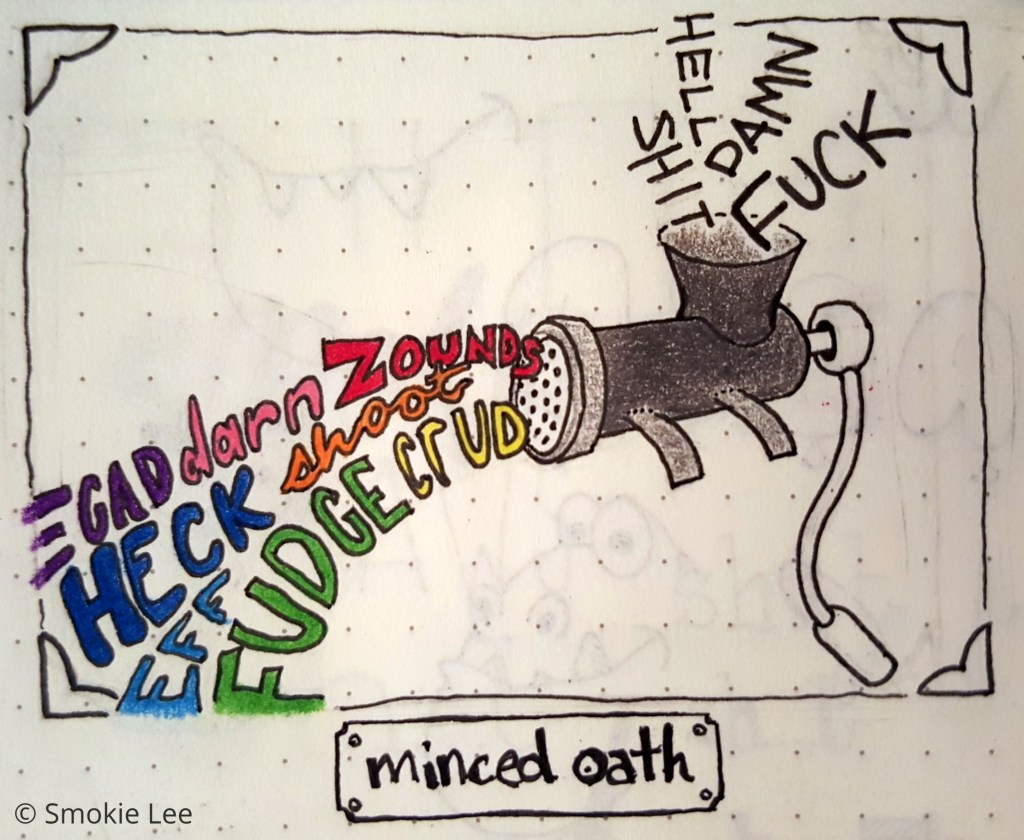 HELL
DAMN
SHIT
FUCK
ZOUNDS
darn
shoot
CRUD
EGAD
HECK
FUDGE
EFF
minced oath
© Smokie Lee